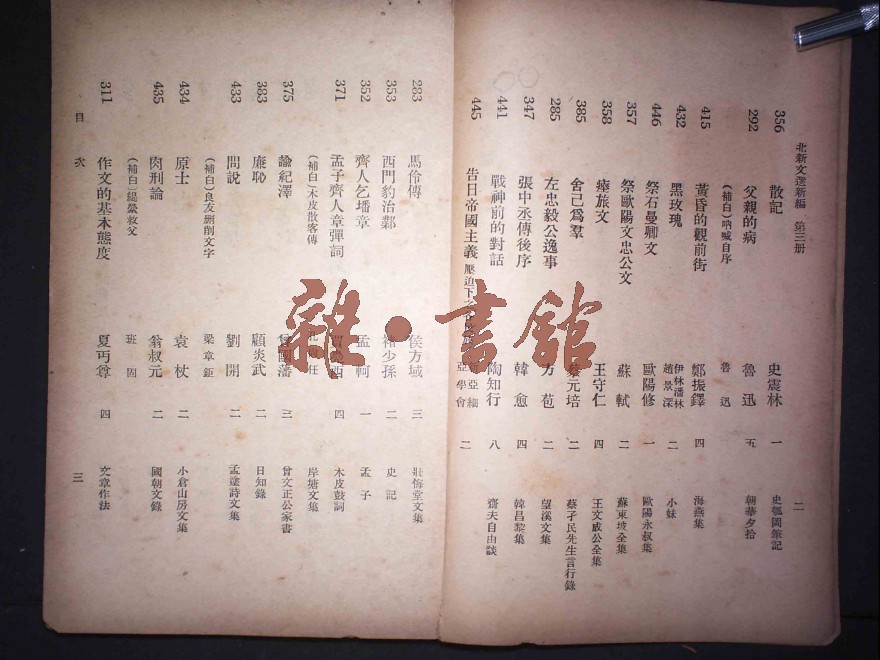 北新文選新編 第三册 二
356 散記 史震林 一 史
292 父親的病 魯迅 五 朝華夕拾
(補白)吶喊自序 魯迅
415 黃昏的觀前街 鄭振鐸 四 海燕集
432 黑玫瑰 伊林潘林 趙景深 二 小妹
446 祭石曼卿文 歐陽修 一 歐陽永叔集
357 祭歐陽文忠公文 蘇軾 二 蘇東坡全集
358 瘞旅文 王守仁 四 王文成公全集
385 舍己爲羣 蔡元培 二 蔡孑民先生言行錄
285 左忠毅公逸事 方苞 二 望溪文集
347 張中丞傳後序 韓愈 四 韓昌黎集
441 戰神前的對話 陶知行 八 齋夫自由談
445 告日帝國主義壓迫下 亞學會 二
283 馬伶傳 侯方域 三 壯悔堂文集
353 西門豹治鄴 褚少孫 二 史記
352 齊人乞墦章 孟軻 一 孟子
371 孟子齊人章彈詞 賈 西 四 木皮鼓詞
(補白)木皮散客傳 任 岸塘文集
375 諭紀澤 曾國藩 三 曾文正公家書
383 廉恥 顧炎武 二 日知錄
433 問說 劉開 二 孟塗詩文集
(補白)良友删削文字 梁章鉅
434 原士 袁枚 二 小倉山房文集
435 肉刑論 翁叔元 二 國朝文錄
(補白)緹縈救父 班固
311 作文的基本態度 夏丏尊 四 文章作法
目次 三
雜·書館